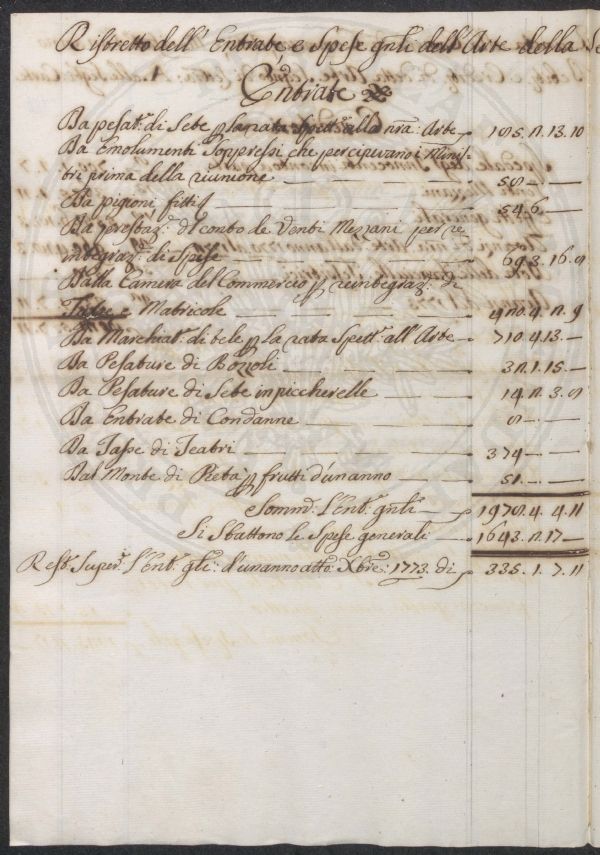 Ristretto dell' Entrate e Spese gnli dell'Arte della Se
Entrate
Da pesat.e di Sete p la rata Spett.e alla nrã: Arte 105. 11. 13. 10
Da Emolumenti Soppressi che percipevano i Minis-
tri prima della riunione 58 — —
Da pigioni fitti 54. 6. —
Da prestaz.e del conto de Venti Mezzani per re
integraz.e di Spese 693. 16. 8
Dalla Camera del Commercio p reintegraz.e di
Tasse e Matricole 4. 9
Da Marchiat.e di tele p la rata Spett.e all'Arte 710. 4. 13. —
Da Pesature di Bozzoli 1. 15. —
Da Pesature di Sete in piccherelle 3. 8
Da Entrate di Condanne 8 — —
Da Tasse di Teatri 374 — —
Dal Monte di Pietà p frutti d'un anno 51. — —
Somm.o l'Ent.e gnli 1978. 4. 4. 11
Si Sbattono le Spese generali 1643. 11. 17 —
Rest. Super.e l'Ent.e gli: d'un anno a tto Xbre: 1773. di 335. 1. 7. 11